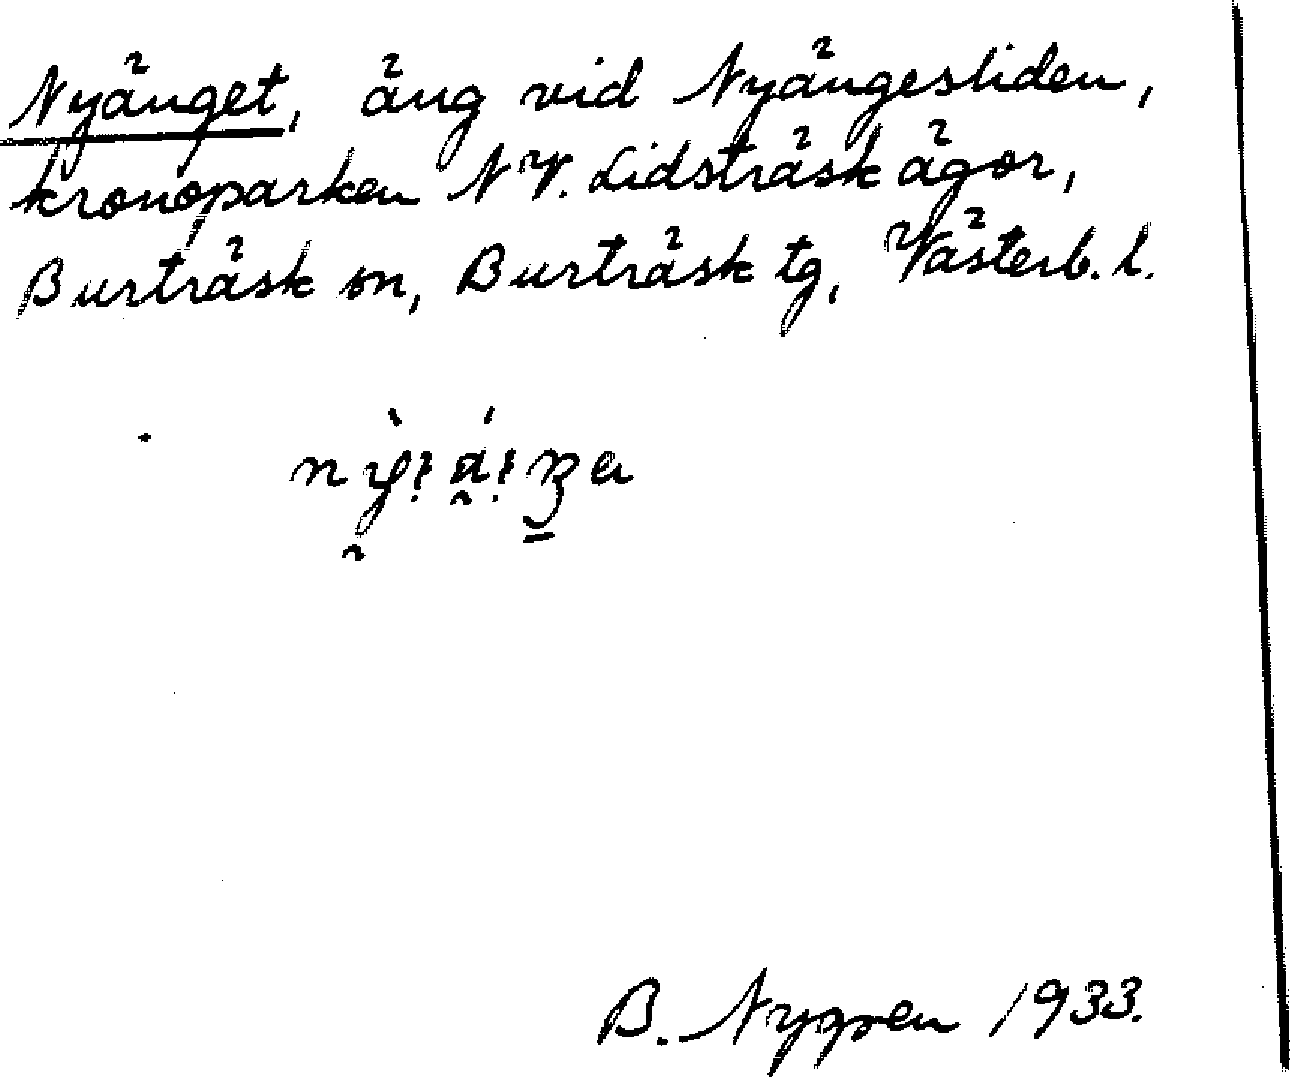 Nyänget, äng vid Nyängesliden,
kronoparken NV. Lidsträsk ägor,
Burträsk sn, Burträsk tg, Västerb. l.
B. Nygren 1933.